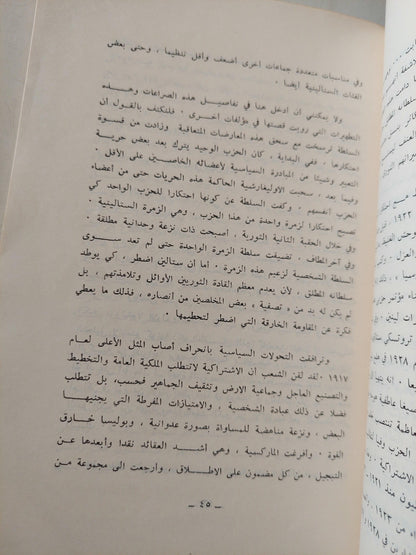 وفي مناسبات متعددة جماعات أخرى اضعف وأقل تنظيما ، وحتى بعض
الفئات الستالينية أيضا .
ولا يمكنني أن ادخل هنا في تفاصيل هذه الصراعات وهذه
التطهيرات التي رويت قصتها في مؤلفات اخرى . فلنكتف بالقول ان
السلطة ترسخت مع سحق هذه المعارضات المتعاقبة وزادت من قسوة
احتكارها . ففي البداية ، كان الحزب الوحيد يترك بعد بعض حرية
التعبير وشيئا من المبادرة السياسية لأعضائه الخاصين على الأقل .
وفيما بعد ، سحبت الأوليغارشية الحاكمة هذه الحريات حتى من أعضاء
الحزب أنفسهم . وكفت السلطة عن كونها احتكارا للحزب الواحد كي
تصبح احتكارا لزمرة واحدة من هذا الحزب ، وهي الزمرة الستالينية .
وفي خلال الحقبة الثانية الثورية ، أصبحت ذات نزعة وحدانية مطلقة .
وفي آخر المطاف ، تضيقت سلطة الزمرة الواحدة حتى لم تعد سوى
السلطة الشخصية لزعيم هذه الزمرة . اما أن ستالين اضطر ، كي يوطد
سلطانه المطلق ، لأن يعدم معظم القادة الثوريين الأوائل وتلامذتهم ، بل
لم يكن له بد من « تصفية » بعض المخلصين من أنصاره ، فذلك ما يعطي
فكرة عن المقاومة الخارقة التي اضطر لتحطيمها .
وترافقت التحولات السياسية بانحراف أصاب المثل الأعلى لعام
١٩١٧ . لقد لقن الشعب أن الاشتراكية لا تتطلب الملكية العامة والتخطيط
والتصنيع العاجل وجماعية الارض وتثقيف الجماهير فحسب ، بل تتطلب
فضلا عن ذلك عبادة الشخصية ، والامتيازات المفرطة التي يجنيها
البعض ، ونزعة مناهضة للمساواة بصورة عدوانية ، وبوليسا خارق
القوة . وأفرغت الماركسية ، وهي أشد العقائد نقدا وأبعدها عن
التبجيل ، من كل مضمون على الاطلاق ، وأرجعت الى مجموعة من
– ٤٥ –